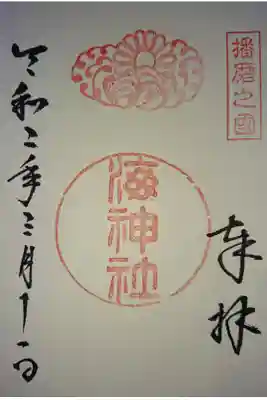 播磨之国
奉拝
海神社
令和二年三月十一日